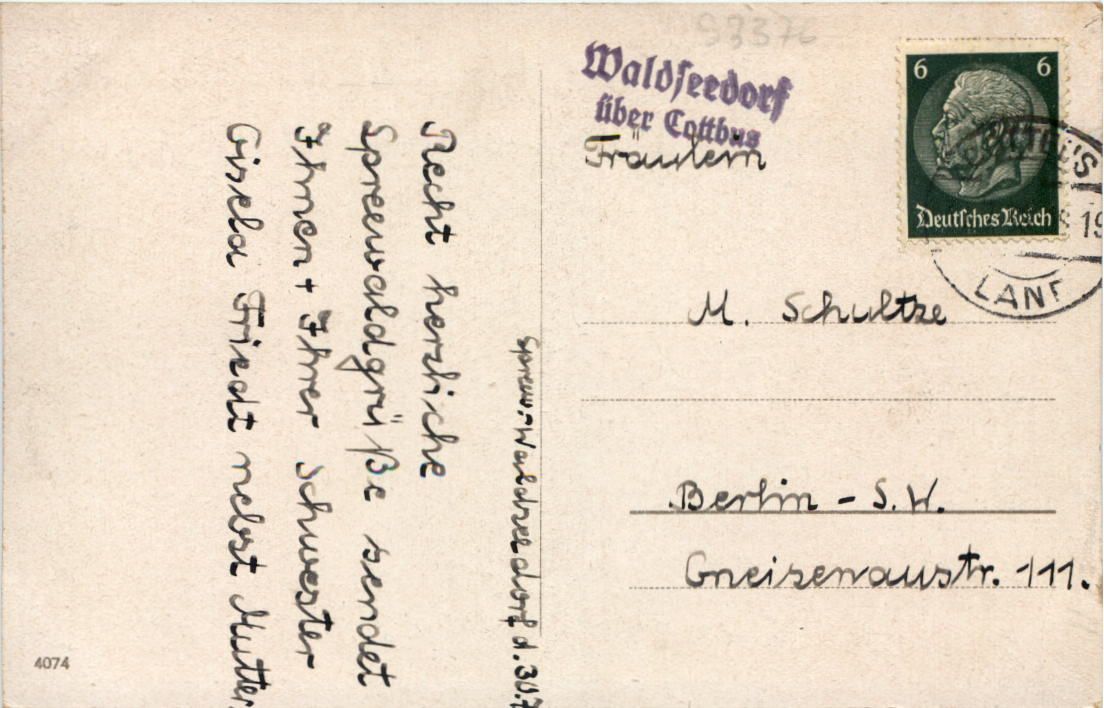 93376
Waldseedorf
über Cottbus
6 6
Deutsches Reich
COTTBUS
19
LAND
Fräulein
M. Schultze
Berlin - S.W.
Gneisenaustr. 111.
Spreew.-Waldseedorf d. 30.7
Recht herzliche
Spreewaldgrüße sendet
Ihnen + Ihrer Schwester
Gisela Friedt nebst Mutter.
4074